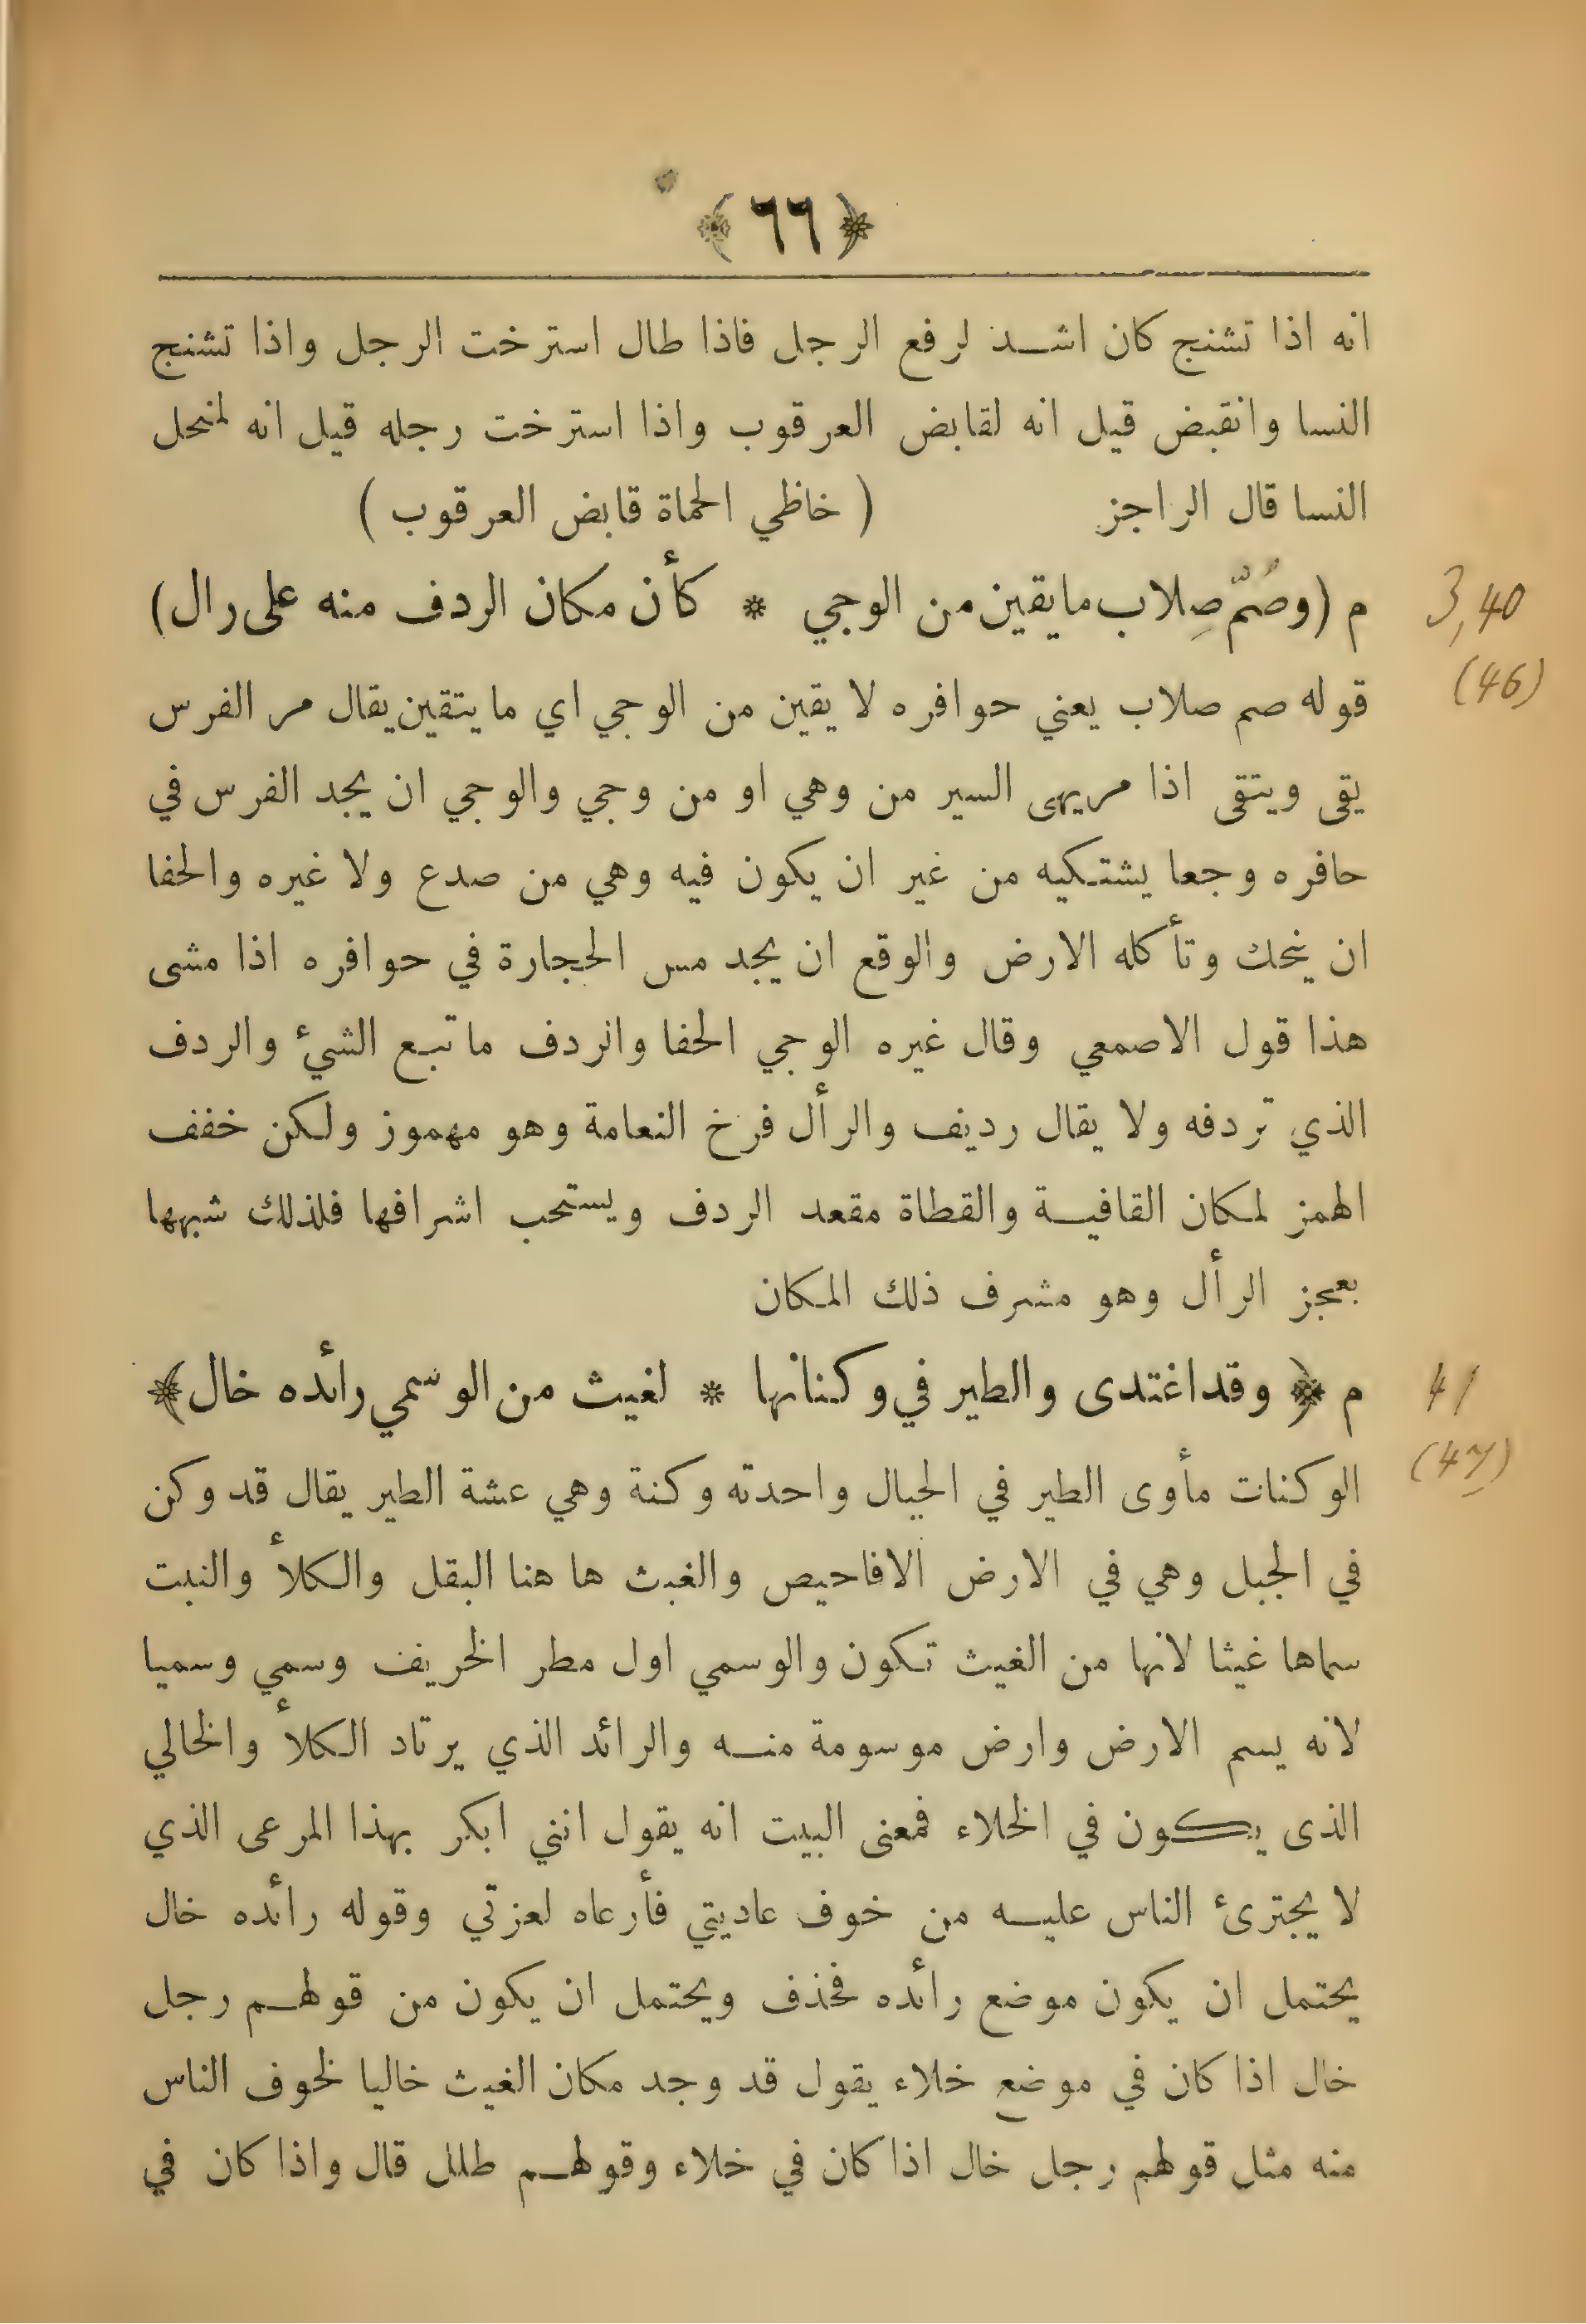 ﴿ ٦٦ ﴾
انه اذا تشنج كان اشد لرفع الرجل فاذا طال استرخت الرجل واذا تشنج
النسا وانقبض قيل انه لقابض العرقوب واذا استرخت رجله قيل انه لمنحل
النسا قال الراجز ( خاظي الحماة قابض العرقوب )
م (وصُمّ صِلاب مايقين من الوجي * كأن مكان الردف منه على رال)
3,40
(46)
قوله صم صلاب يعني حوافره لا يقين من الوجي اي ما يتقين يقال مر الفرس
يقى ويتقى اذا مر يهى السير من وهي او من وجي والوجي ان يجد الفرس في
حافره وجعا يشتكيه من غير ان يكون فيه وهي من صدع ولا غيره والحفا
ان ينحك وتأكله الارض والوقع ان يجد مس الحجارة في حوافره اذا مشى
هذا قول الاصمعي وقال غيره الوجي الحفا والردف ما تبع الشئ والردف
الذي تردفه ولا يقال رديف والرأل فرخ النعامة وهو مهموز ولكن خفف
الهمز لمكان القافية والقطاة مقعد الردف ويستحب اشرافها فلذلك شبهها
بعجز الرأل وهو مشرف ذلك المكان
م ﴿ وقد اغتدى والطير في وكناتها * لغيث من الوسمي رائده خال ﴾
41
(47)
الوكنات مأوى الطير في الجبال واحدته وكنة وهي عشة الطير يقال قد وكن
في الجبل وهي في الارض الافاحيص والغيث ها هنا البقل والكلأ والنبت
سماها غيثا لانها من الغيث تكون والوسمي اول مطر الخريف وسمي وسميا
لانه يسم الارض وارض موسومة منه والرائد الذي يرتاد الكلأ والخالي
الذى يكون في الخلاء فمعنى البيت انه يقول انني ابكر بهذا المرعى الذي
لا يجترئ الناس عليه من خوف عاديتي فأرعاه لعزتي وقوله رائده خال
يحتمل ان يكون موضع رائده فحذف ويحتمل ان يكون من قولهم رجل
خال اذا كان في موضع خلاء يقول قد وجد مكان الغيث خاليا لخوف الناس
منه مثل قولهم رجل خال اذا كان في خلاء وقولهم طلل قال واذا كان في